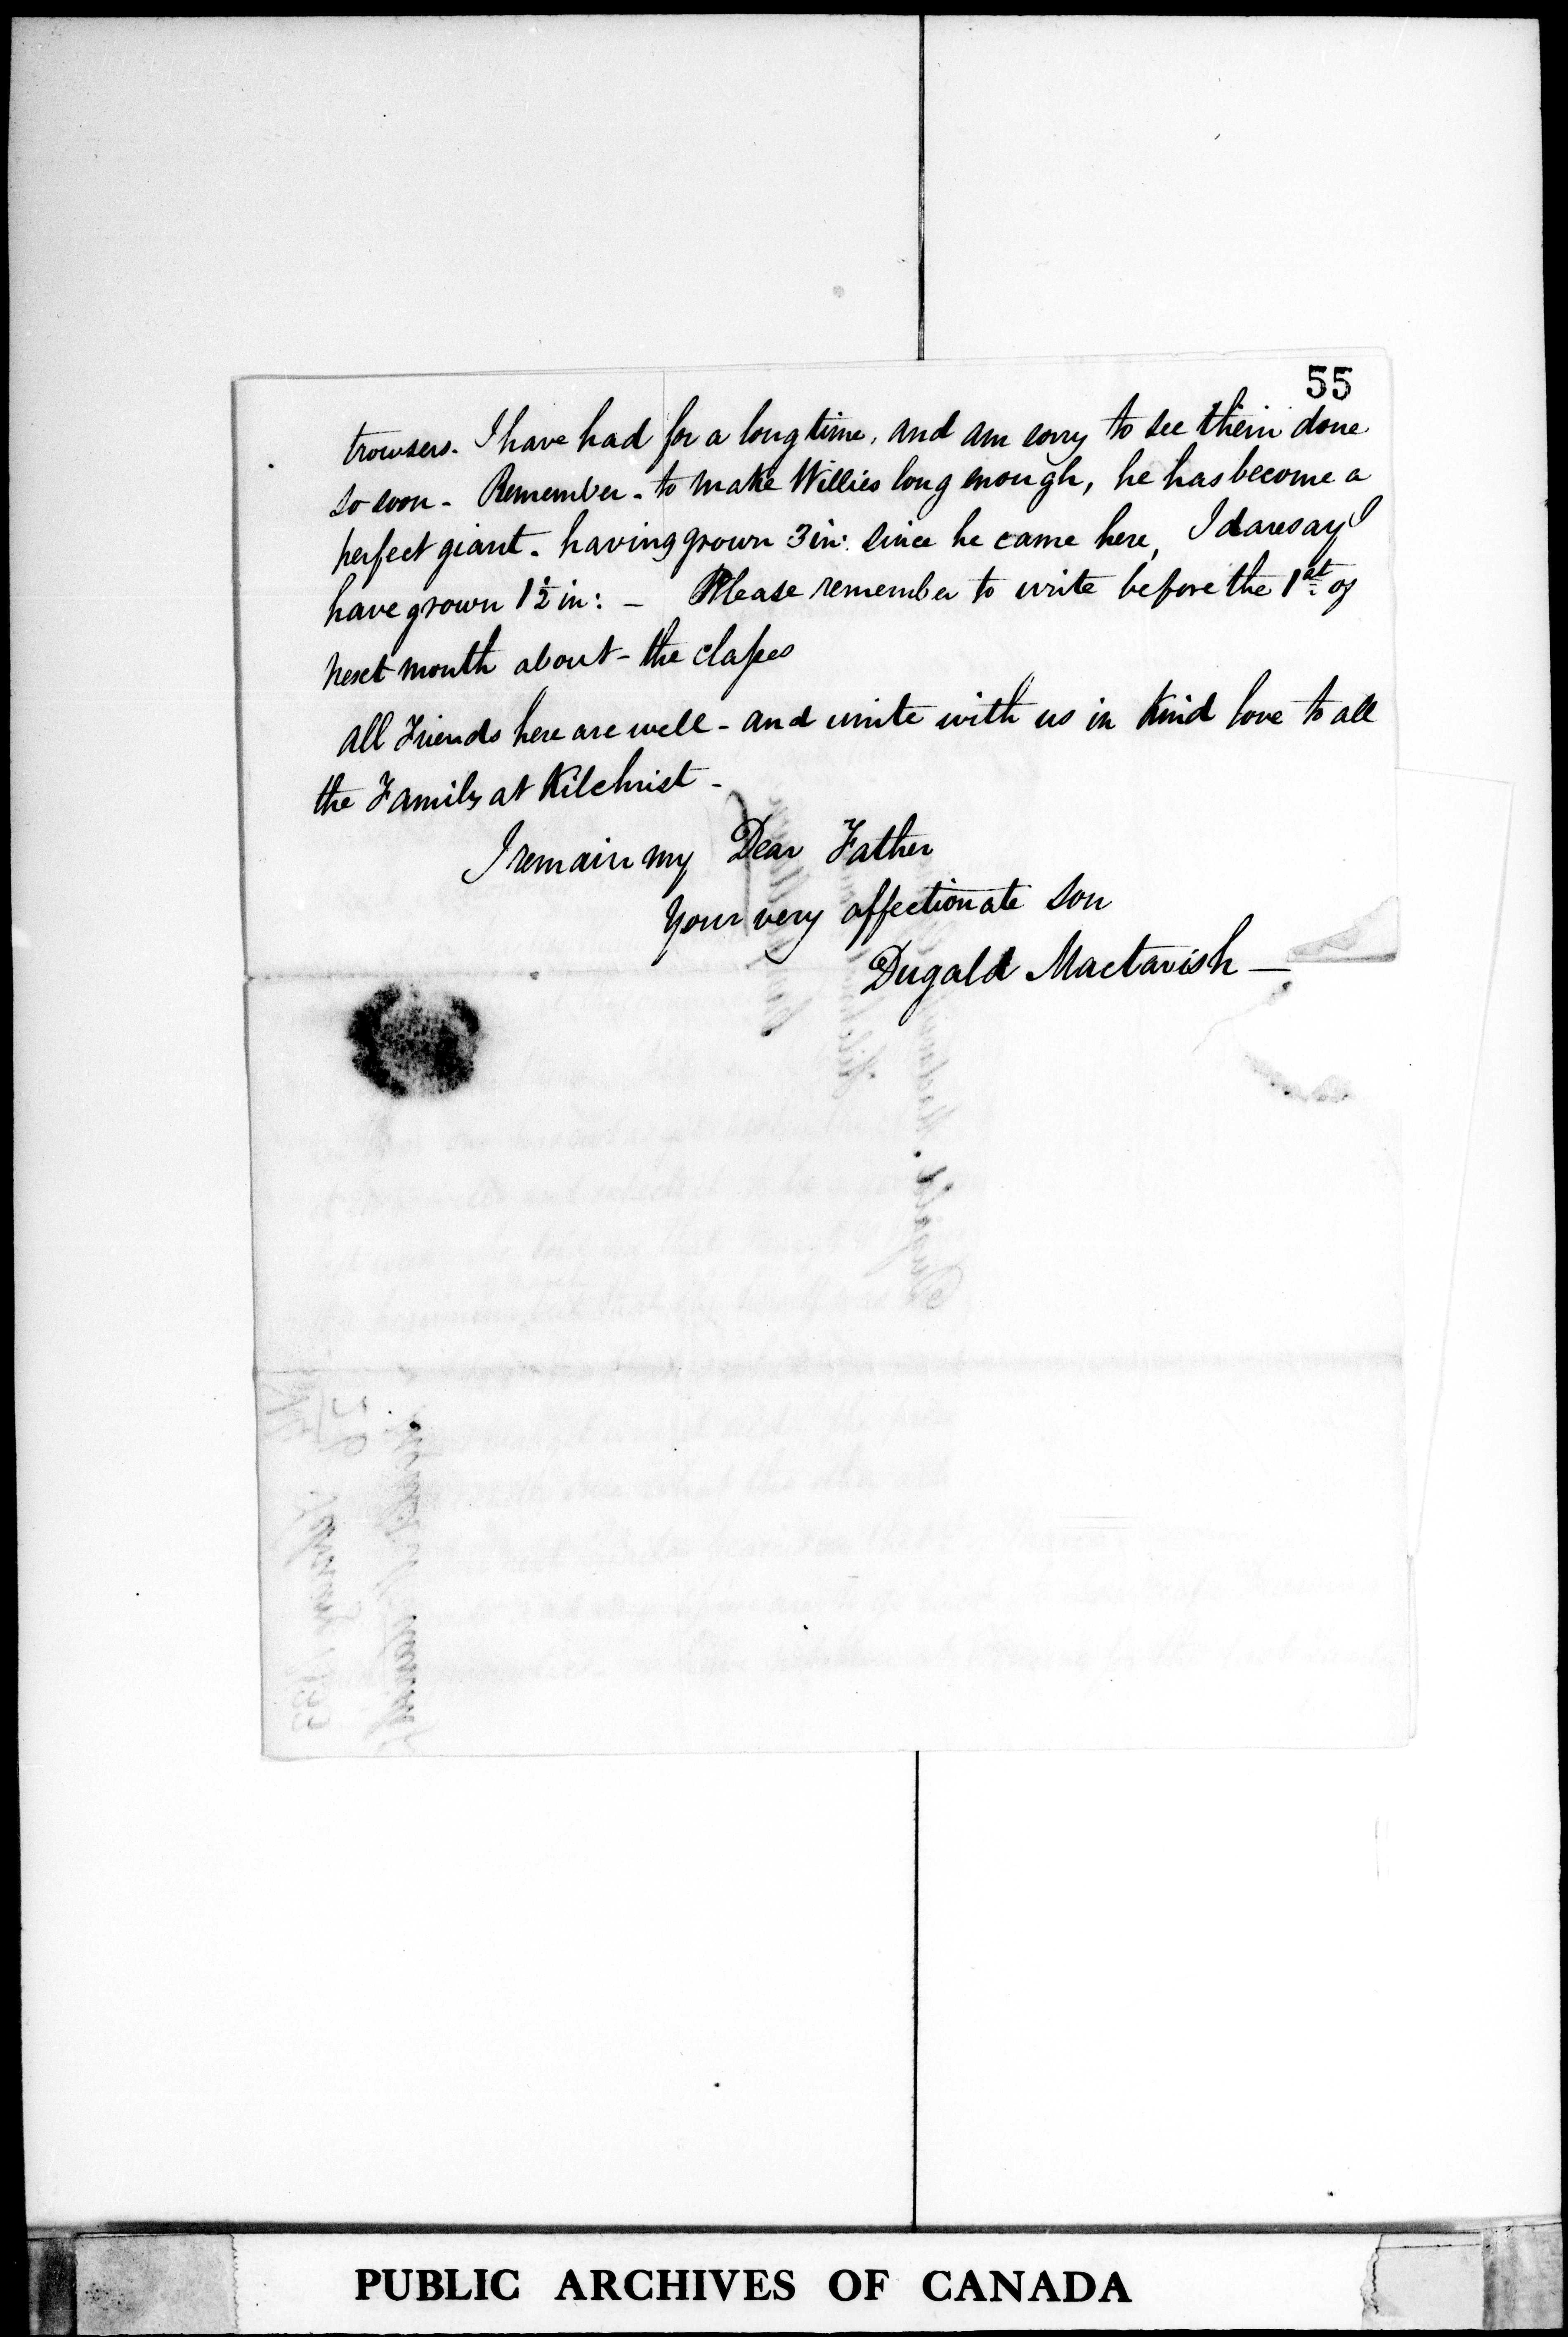 55
trowsers. I have had for a long time, and am sorry to see them done
so soon - Remember - to make Willies long enough, he has become a
perfect giant - having grown 3 in: since he came here, I daresay I
have grown 1½ in: - Please remember to write before the 1st of
next month about - the claſses
All Friends here are well - and unite with us in kind love to all
the Family at Kilchrist -
I remain my Dear Father
Your very affectionate son
Dugald Mactavish —
PUBLIC ARCHIVES OF CANADA